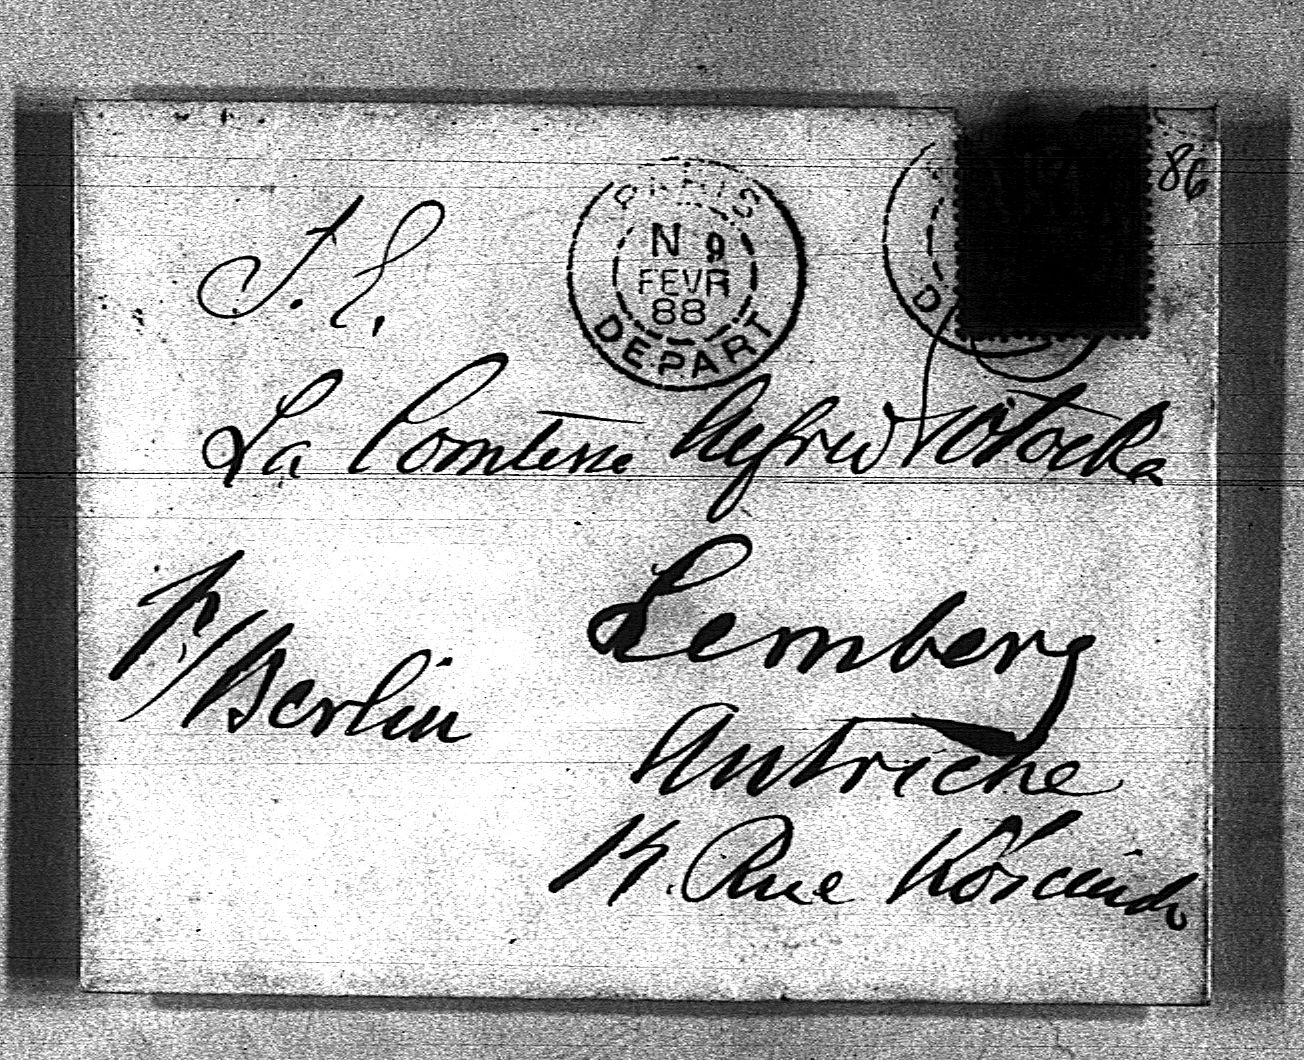 86
PARIS
N 9
FEVR
88
DEPART
D
S. E.
La Comtesse Alfred Potocka
Lemberg
p/Berlin
Autriche
14. Rue